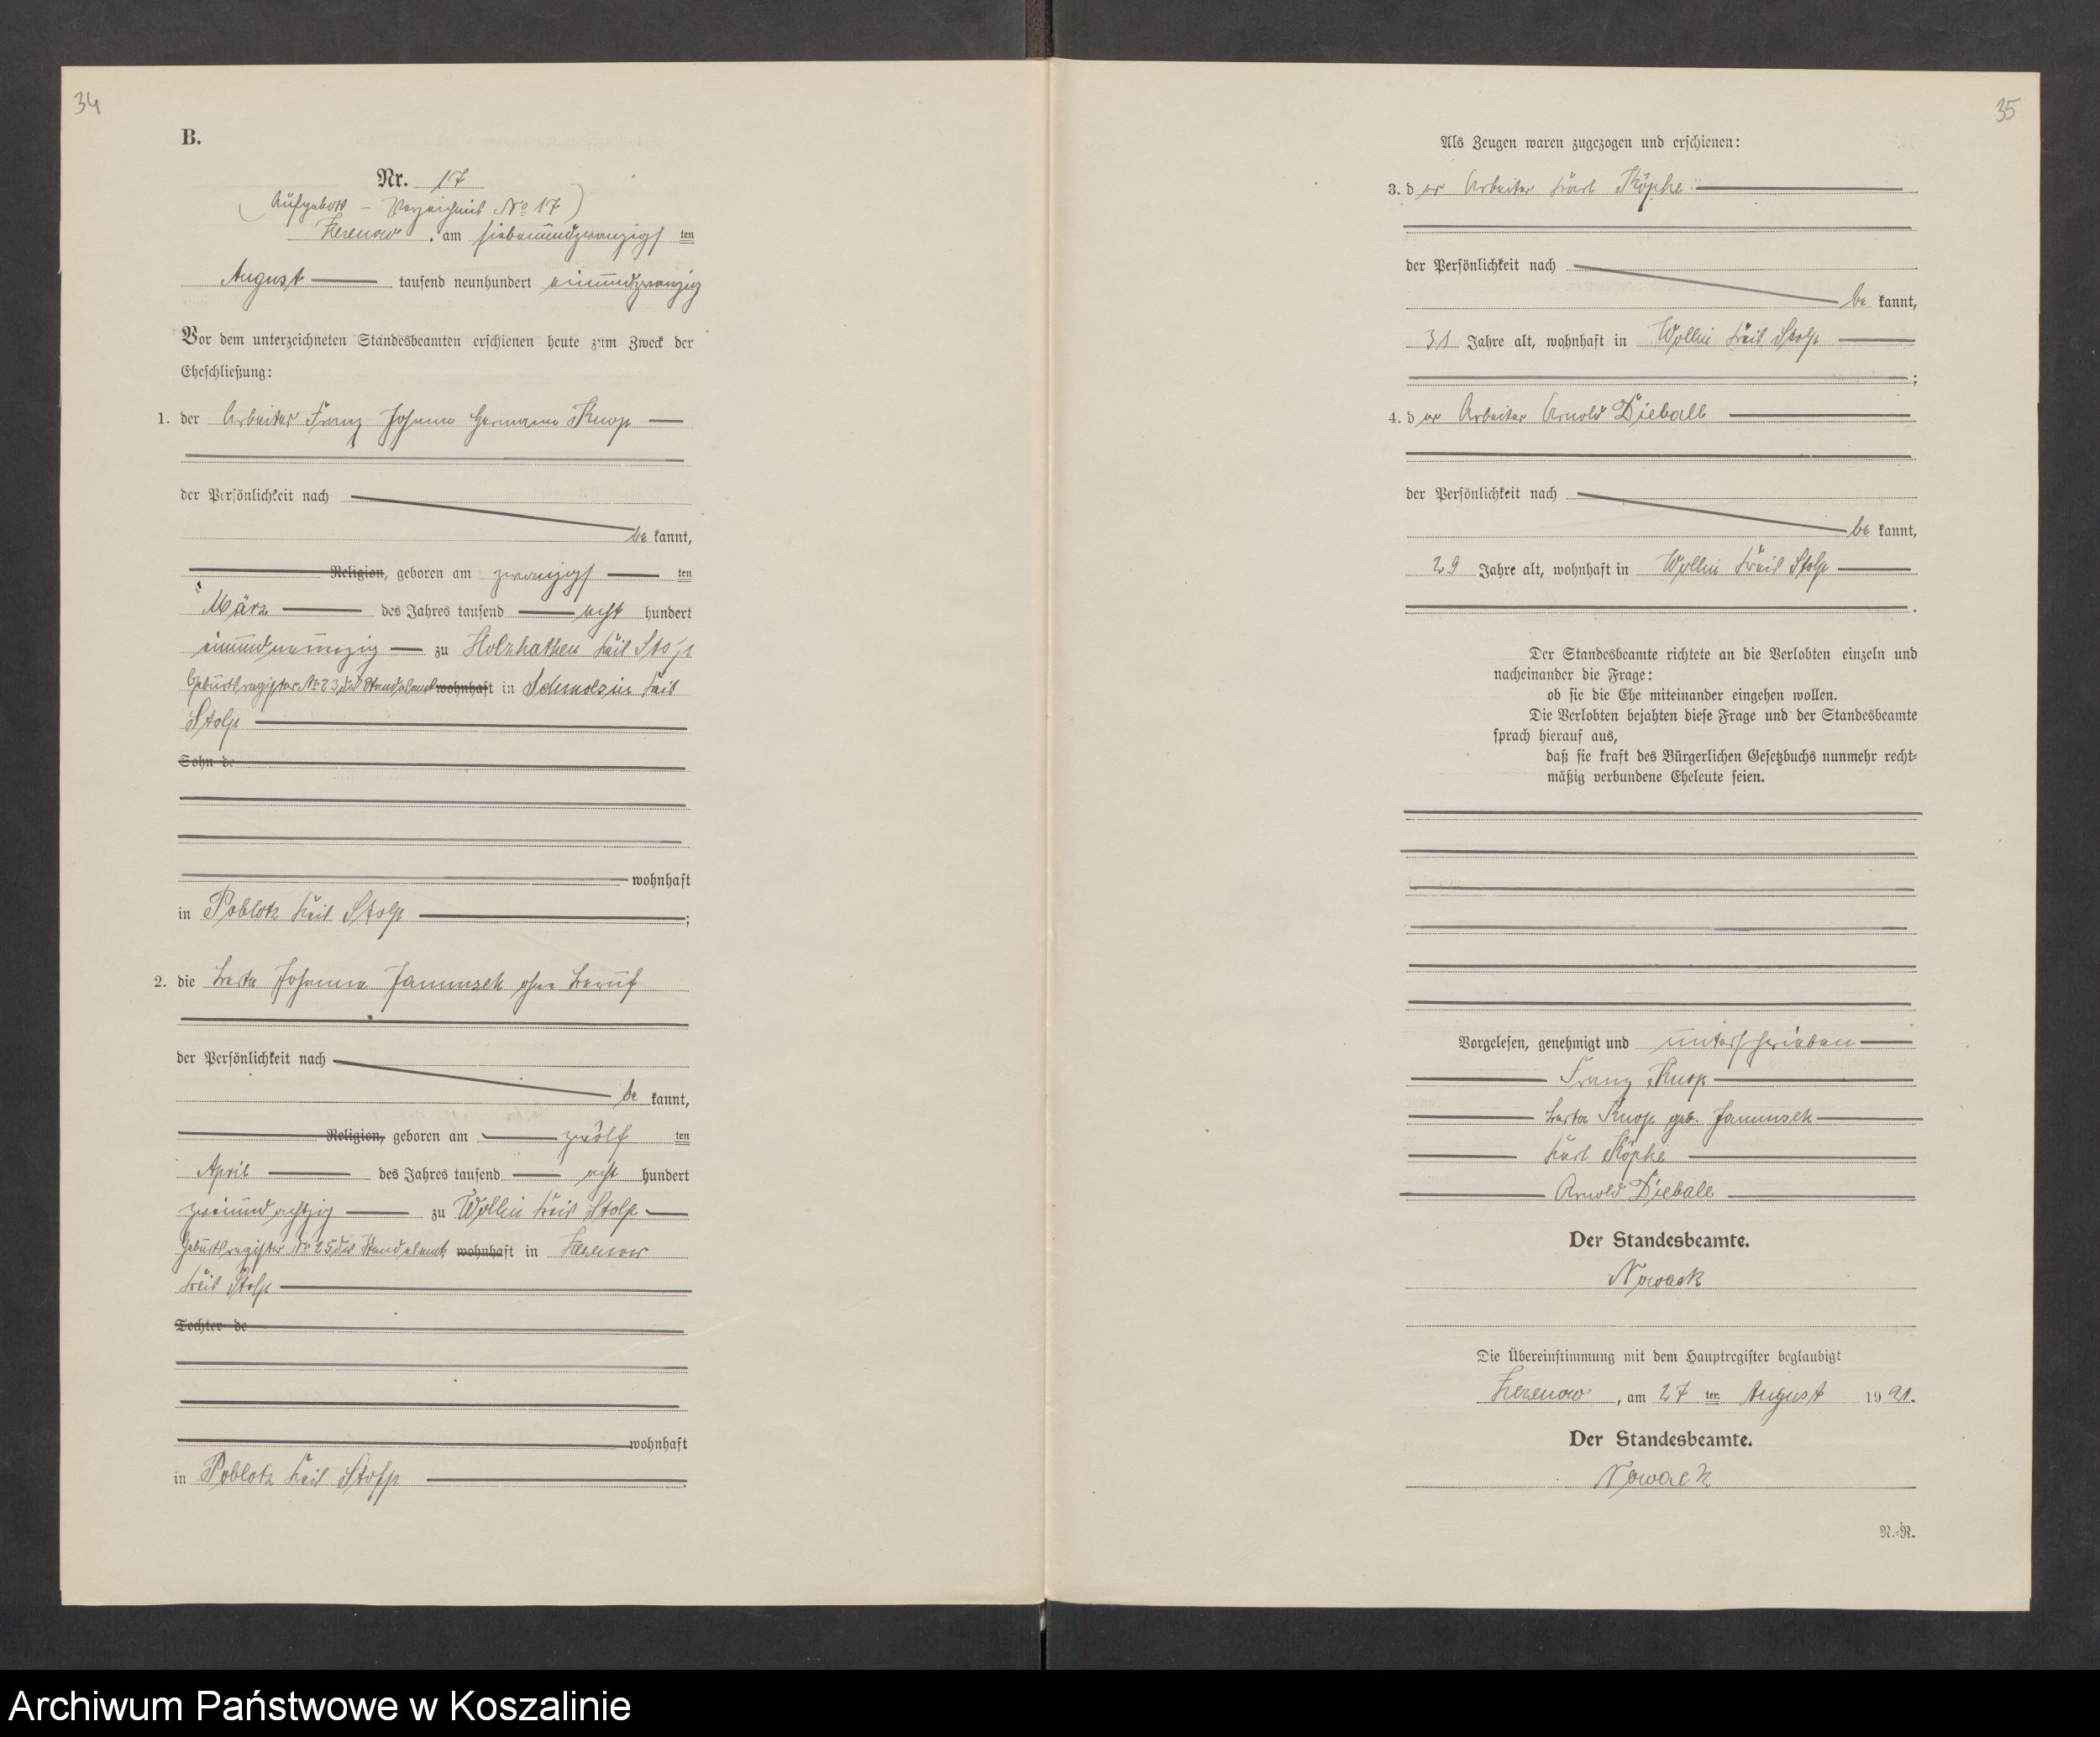 34
B.
Nr. 17
(Aufgebots-Verzeichnis No 17)
Zezenow, am siebenundzwanzigsten
August tausend neunhundert einundzwanzig
Vor dem unterzeichneten Standesbeamten erschienen heute zum Zweck der
Eheschließung:
1. der Arbeiter Franz Johann Hermann Knop
der Persönlichkeit nach
bekannt,
Religion, geboren am zwanzigsten
März des Jahres tausend acht hundert
einundneunzig zu Holzkathen Kreis Stolp
Geburtsregister No 23 des Standesamts wohnhaft in Schmolsin Kreis
Stolp
Sohn de
wohnhaft
in Poblotz Kreis Stolp;
2. die Berta Johanna Jannusch ohne Beruf
der Persönlichkeit nach
bekannt,
Religion, geboren am zwölften
April des Jahres tausend acht hundert
zweiundachtzig zu Wollin Kreis Stolp
Geburtsregister No 25 des Standesamts wohnhaft in Zezenow
Kreis Stolp
Tochter de
wohnhaft
in Poblotz Kreis Stolp.
35
Als Zeugen waren zugezogen und erschienen:
3. der Arbeiter Karl Köpke
der Persönlichkeit nach
bekannt,
31 Jahre alt, wohnhaft in Wollin Kreis Stolp
;
4. der Arbeiter Arnold Dieball
der Persönlichkeit nach
bekannt,
29 Jahre alt, wohnhaft in Wollin Kreis Stolp
.
Der Standesbeamte richtete an die Verlobten einzeln und
nacheinander die Frage:
ob sie die Ehe miteinander eingehen wollen.
Die Verlobten bejahten diese Frage und der Standesbeamte
sprach hierauf aus,
daß sie kraft des Bürgerlichen Gesetzbuchs nunmehr recht-
mäßig verbundene Eheleute seien.
Vorgelesen, genehmigt und unterschrieben
Franz Knop
Berta Knop geb. Jannusch
Karl Köpke
Arnold Dieball
Der Standesbeamte.
Nowack
Die Übereinstimmung mit dem Hauptregister beglaubigt
Zezenow, am 27 ten August 1921.
Der Standesbeamte.
Nowack
N.-R.
Archiwum Państwowe w Koszalinie